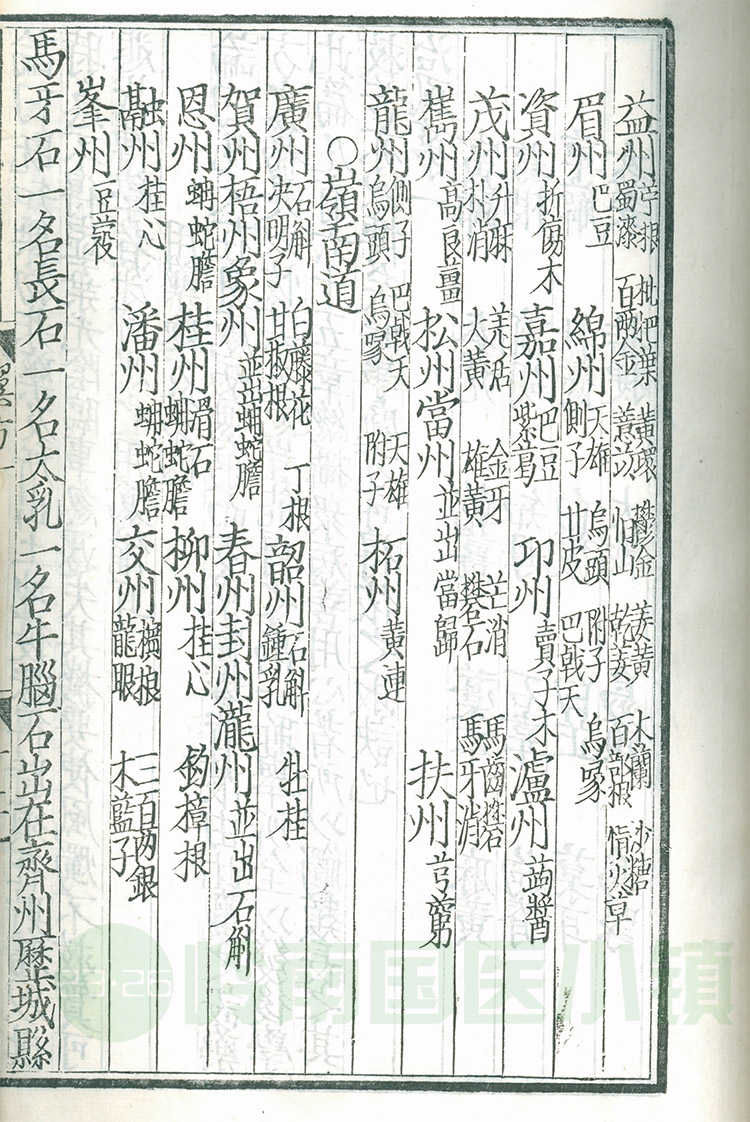 益州苧根 枇杷葉 黃環 鬱金 姜黃 木蘭 沙糖 蜀漆 百兩金 薏苡 恒山 乾姜 百部根 慎火草
眉州巴豆 綿州天雄 烏頭 附子 烏喙 側子 甘皮 巴戟天
資州折傷木 嘉州巴豆 紫葛 邛州賣子木 瀘州蒟醬
茂州升麻 羌活 金牙 芒消 馬齒礬 朴消 大黃 雄黃 礬石 馬牙消
巂州高良薑 松州當州並出當歸 扶州芎藭
龍州側子 巴戟天 天雄 烏頭 烏喙 附子 柘州黃連
○嶺南道
廣州石斛 白藤花 丁根 決明子 甘椒根 韶州石斛 牡桂 鍾乳
賀州梧州象州並出蚺蛇膽 春州封州瀧州並出石斛
恩州蚺蛇膽 桂州滑石 蚺蛇膽 柳州桂心 釣樟根
融州桂心 潘州蚺蛇膽 交州檳榔 三百兩銀 龍眼 木藍子
峯州豆蔻
馬牙石一名長石一名太乳一名牛腦石出在齊州歷城縣
翼方一
岭南国医小镇